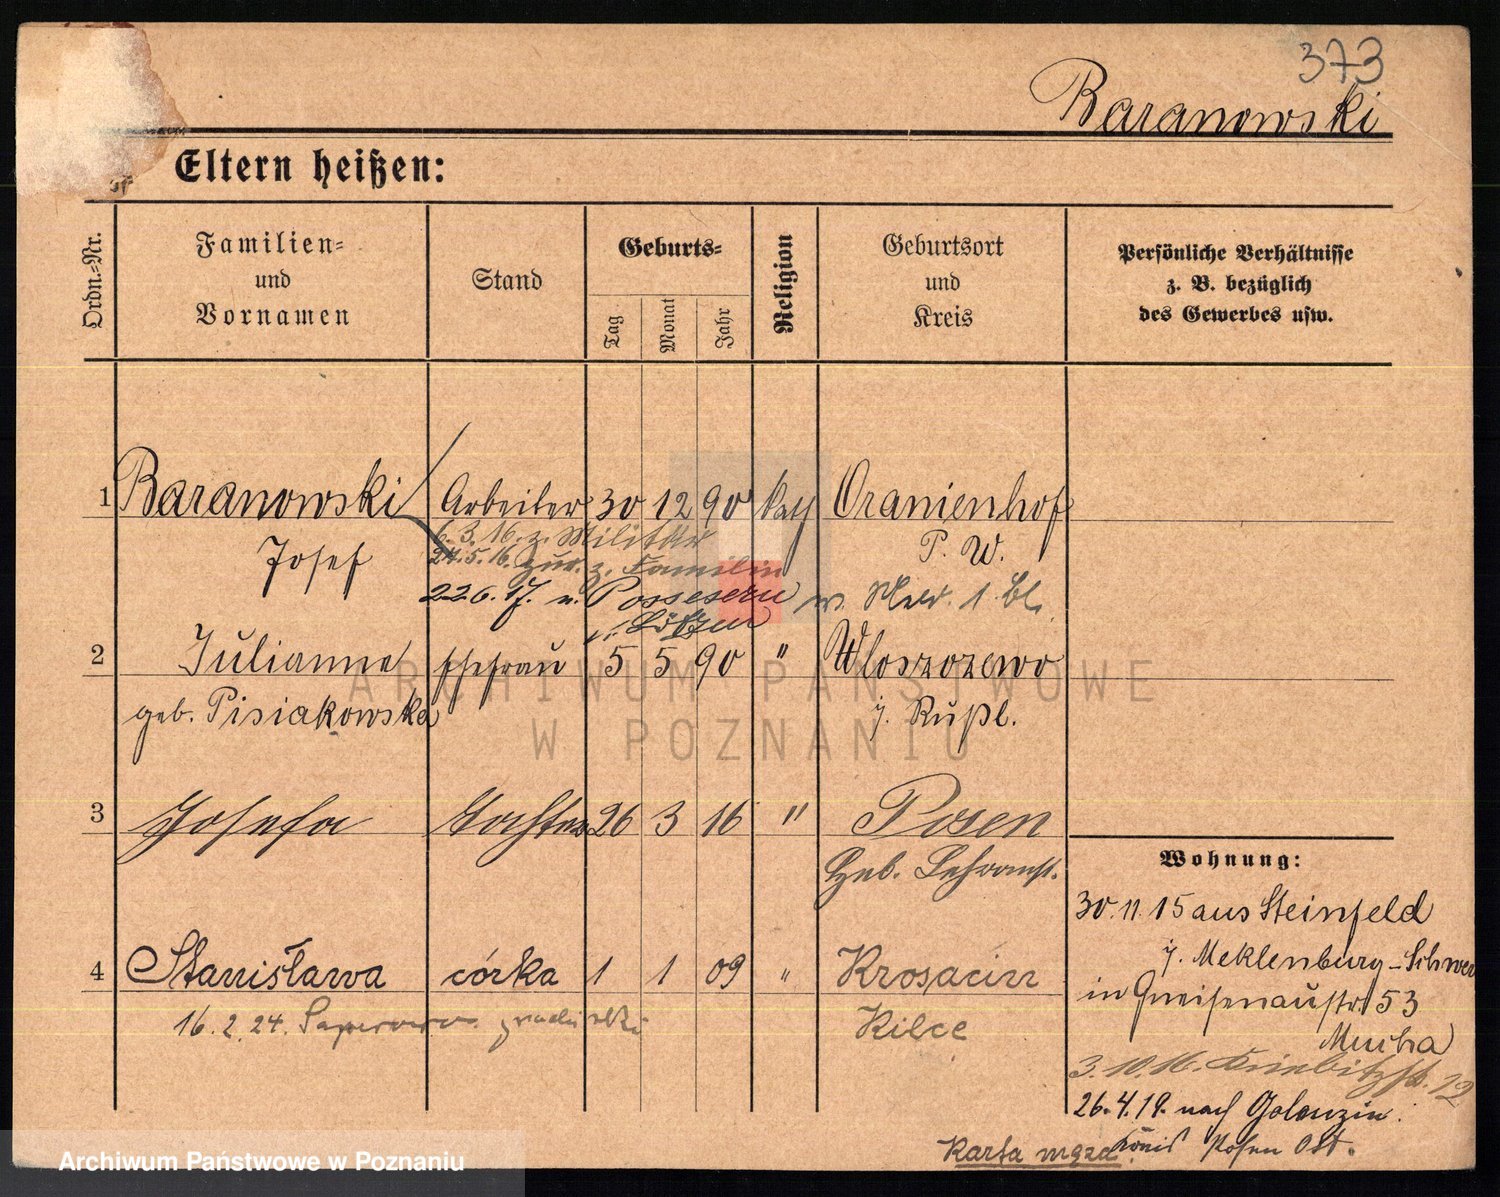 373
Baranowski
Eltern heißen:
Ordn.=Nr.
Familien=
und
Vornamen
Stand
Geburts=
Tag
Monat
Jahr
Religion
Geburtsort
und
Kreis
Persönliche Verhältnisse
z. B. bezüglich
des Gewerbes usw.
1 Baranowski Arbeiter 30 12 90 kath Oranienhof
Josef P. W.
6.3.16. z. Militär
24.5.16. zur. z. Familie
22.6.17. n. Possessern
2 Julianne Ehefrau 5 5 90 " Wloszozewo
geb. Pisiakowska
3 Josefa Tochter 26 3 16 " Posen
Geb. Lehranst.
4 Stanisława córka 1 1 09 " Krosacin
16.2.24.
Kilce
Wohnung:
30.11.15 aus Steinfeld
i. Meklenburg-Schwer
in Gneisenaustr. 53
Mucha
3.10.16. 12
26.4.19. nach Golenzin
Posen Ost.
Karta męża
ARCHIWUM PAŃSTWOWE
W POZNANIU
Archiwum Państwowe w Poznaniu